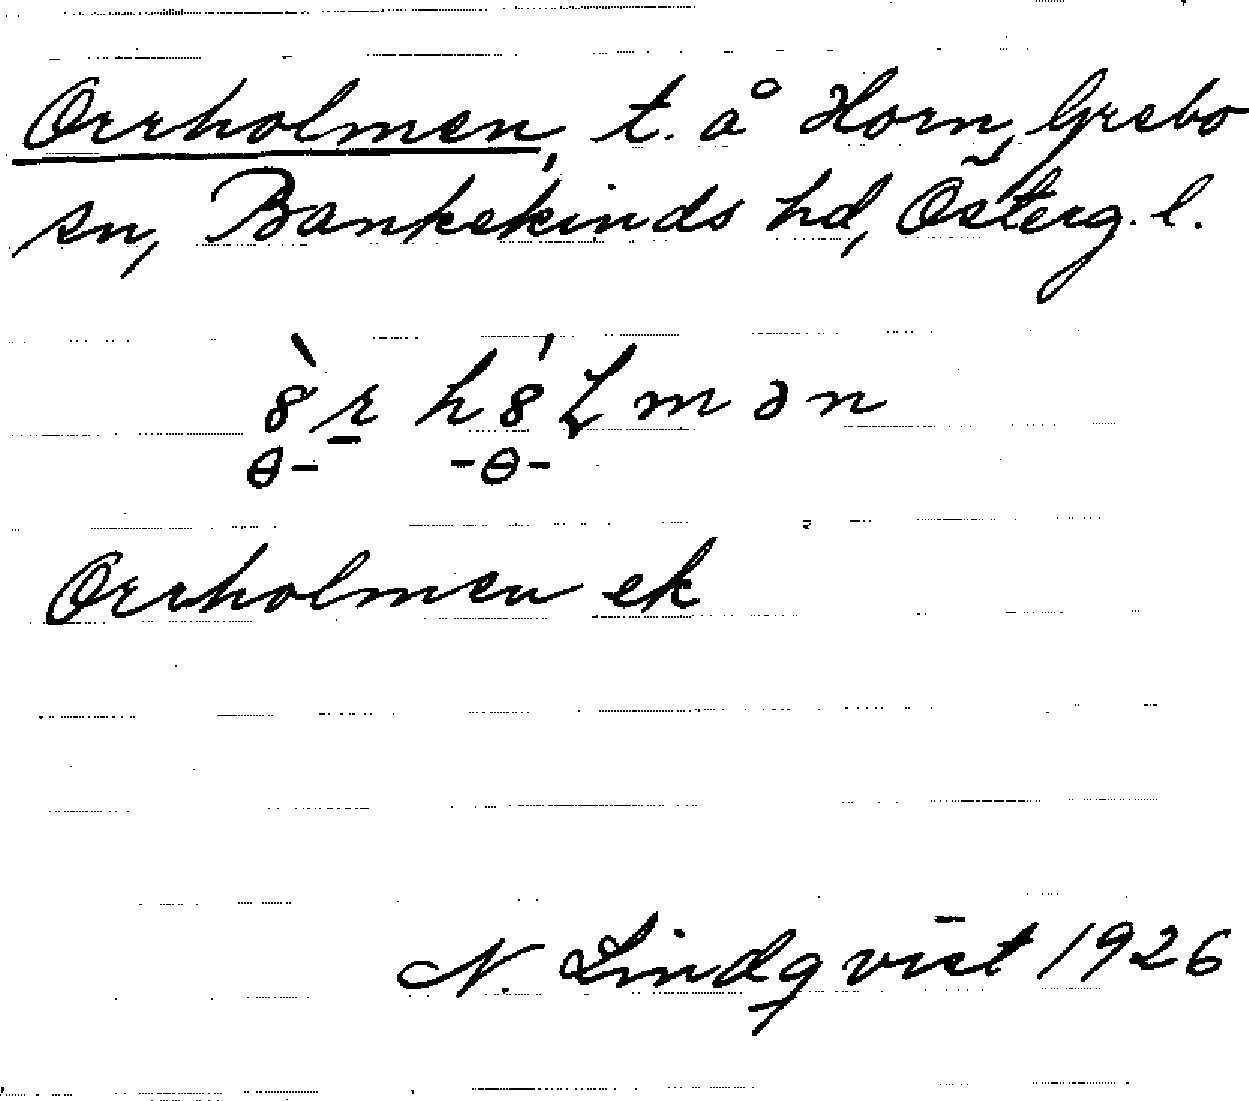 Orrholmen, t. å Horn, Grebo
sn, Bankekinds hd, Österg. l.
8̀r̠ h8́lmən
θ- -θ-
Orrholmen ek
N. Lindqvist 1926